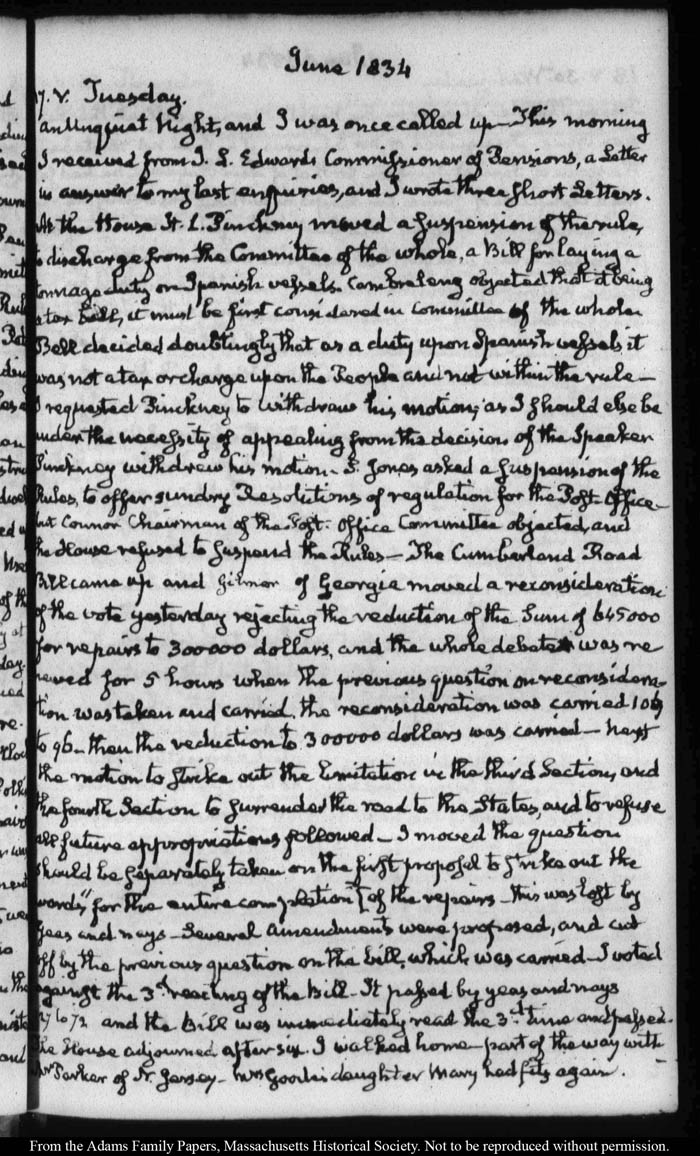 June 1834
17. V. Tuesday.
an Unquiet Night, and I was once called up — This morning
I received from J. L. Edwards Commissioner of Pensions, a Letter
in answer to my last enquiries, and I wrote three short Letters.
At the House H. L. Pinckney moved a suspension of the rule,
to discharge from the Committee of the whole, a Bill for laying a
tonnage duty on Spanish vessels. Cambreleng objected that it being
a tax bill, it must be first considered in committee of the whole
Bell decided doubtingly that as a duty upon Spanish vessels it
was not a tax or charge upon the People and not within the rule —
I requested Pinckney to withdraw his motion, as I should else be
under the necessity of appealing from the decision of the Speaker
Pinckney withdrew his motion. S. Jones asked a suspension of the
Rules, to offer sundry Resolutions of regulation for the Post-Office —
but Connor Chairman of the Post-Office Committee objected, and
the House refused to suspend the Rules — The Cumberland Road
Bill came up and Gilmer of Georgia moved a reconsideration
of the vote yesterday rejecting the reduction of the Sum of 645000
for repairs to 300000 dollars, and the whole debate was re
newed for 5 hours when the previous question on reconsidera-
tion was taken and carried, the reconsideration was carried 109
to 96 — then the reduction to 300000 dollars was carried — next
the motion to strike out the limitation in the third Section, and
the fourth Section to surrender the road to the States, and to refuse
all future appropriations followed — I moved the question
should be separately taken on the first proposal to strike out the
words "for the entire completion" of the repairs — this was lost by
yeas and nays — Several amendments were proposed, and cut
off by the previous question on the bill, which was carried — I voted
against the 3d reading of the Bill. It passed by yeas and nays
to 72 and the Bill was immediately read the 3d time and passed.
The House adjourned after six. I walked home — part of the way with
Mr Parker of N. Jersey — Mrs daughter Mary had fits again.
From the Adams Family Papers, Massachusetts Historical Society. Not to be reproduced without permission.